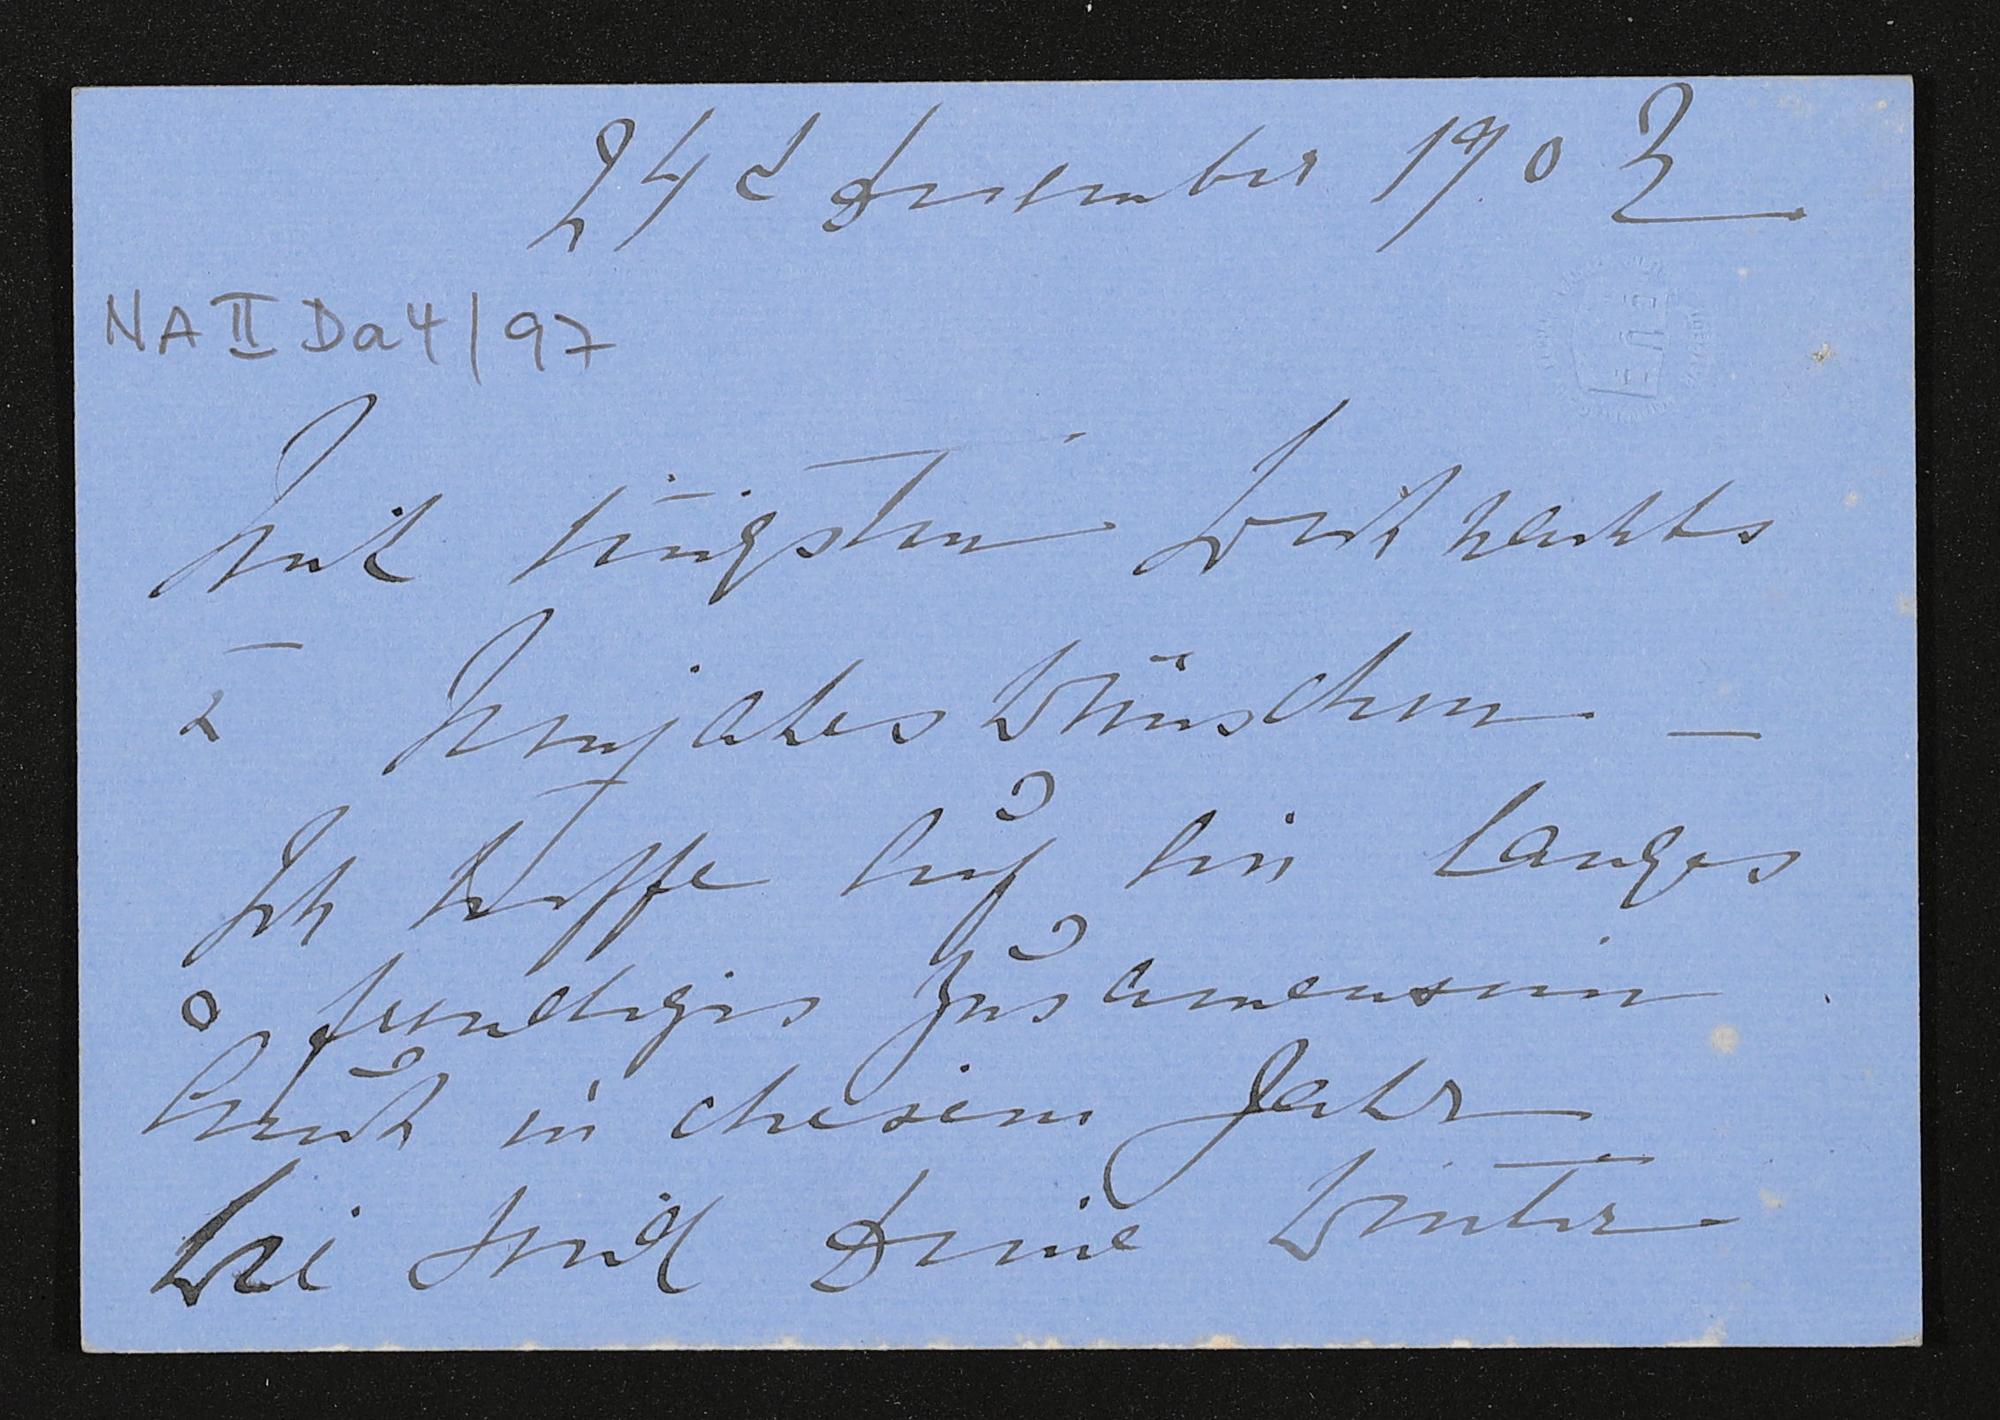 24 d December 1902
NA II Da 4/97
Mit innigsten Weihnachts
& Neujahrs Wünschen —
Ich hoffe auf ein langes
& freudiges Zusammensein
auch in diesem Jahr
Wie Deine